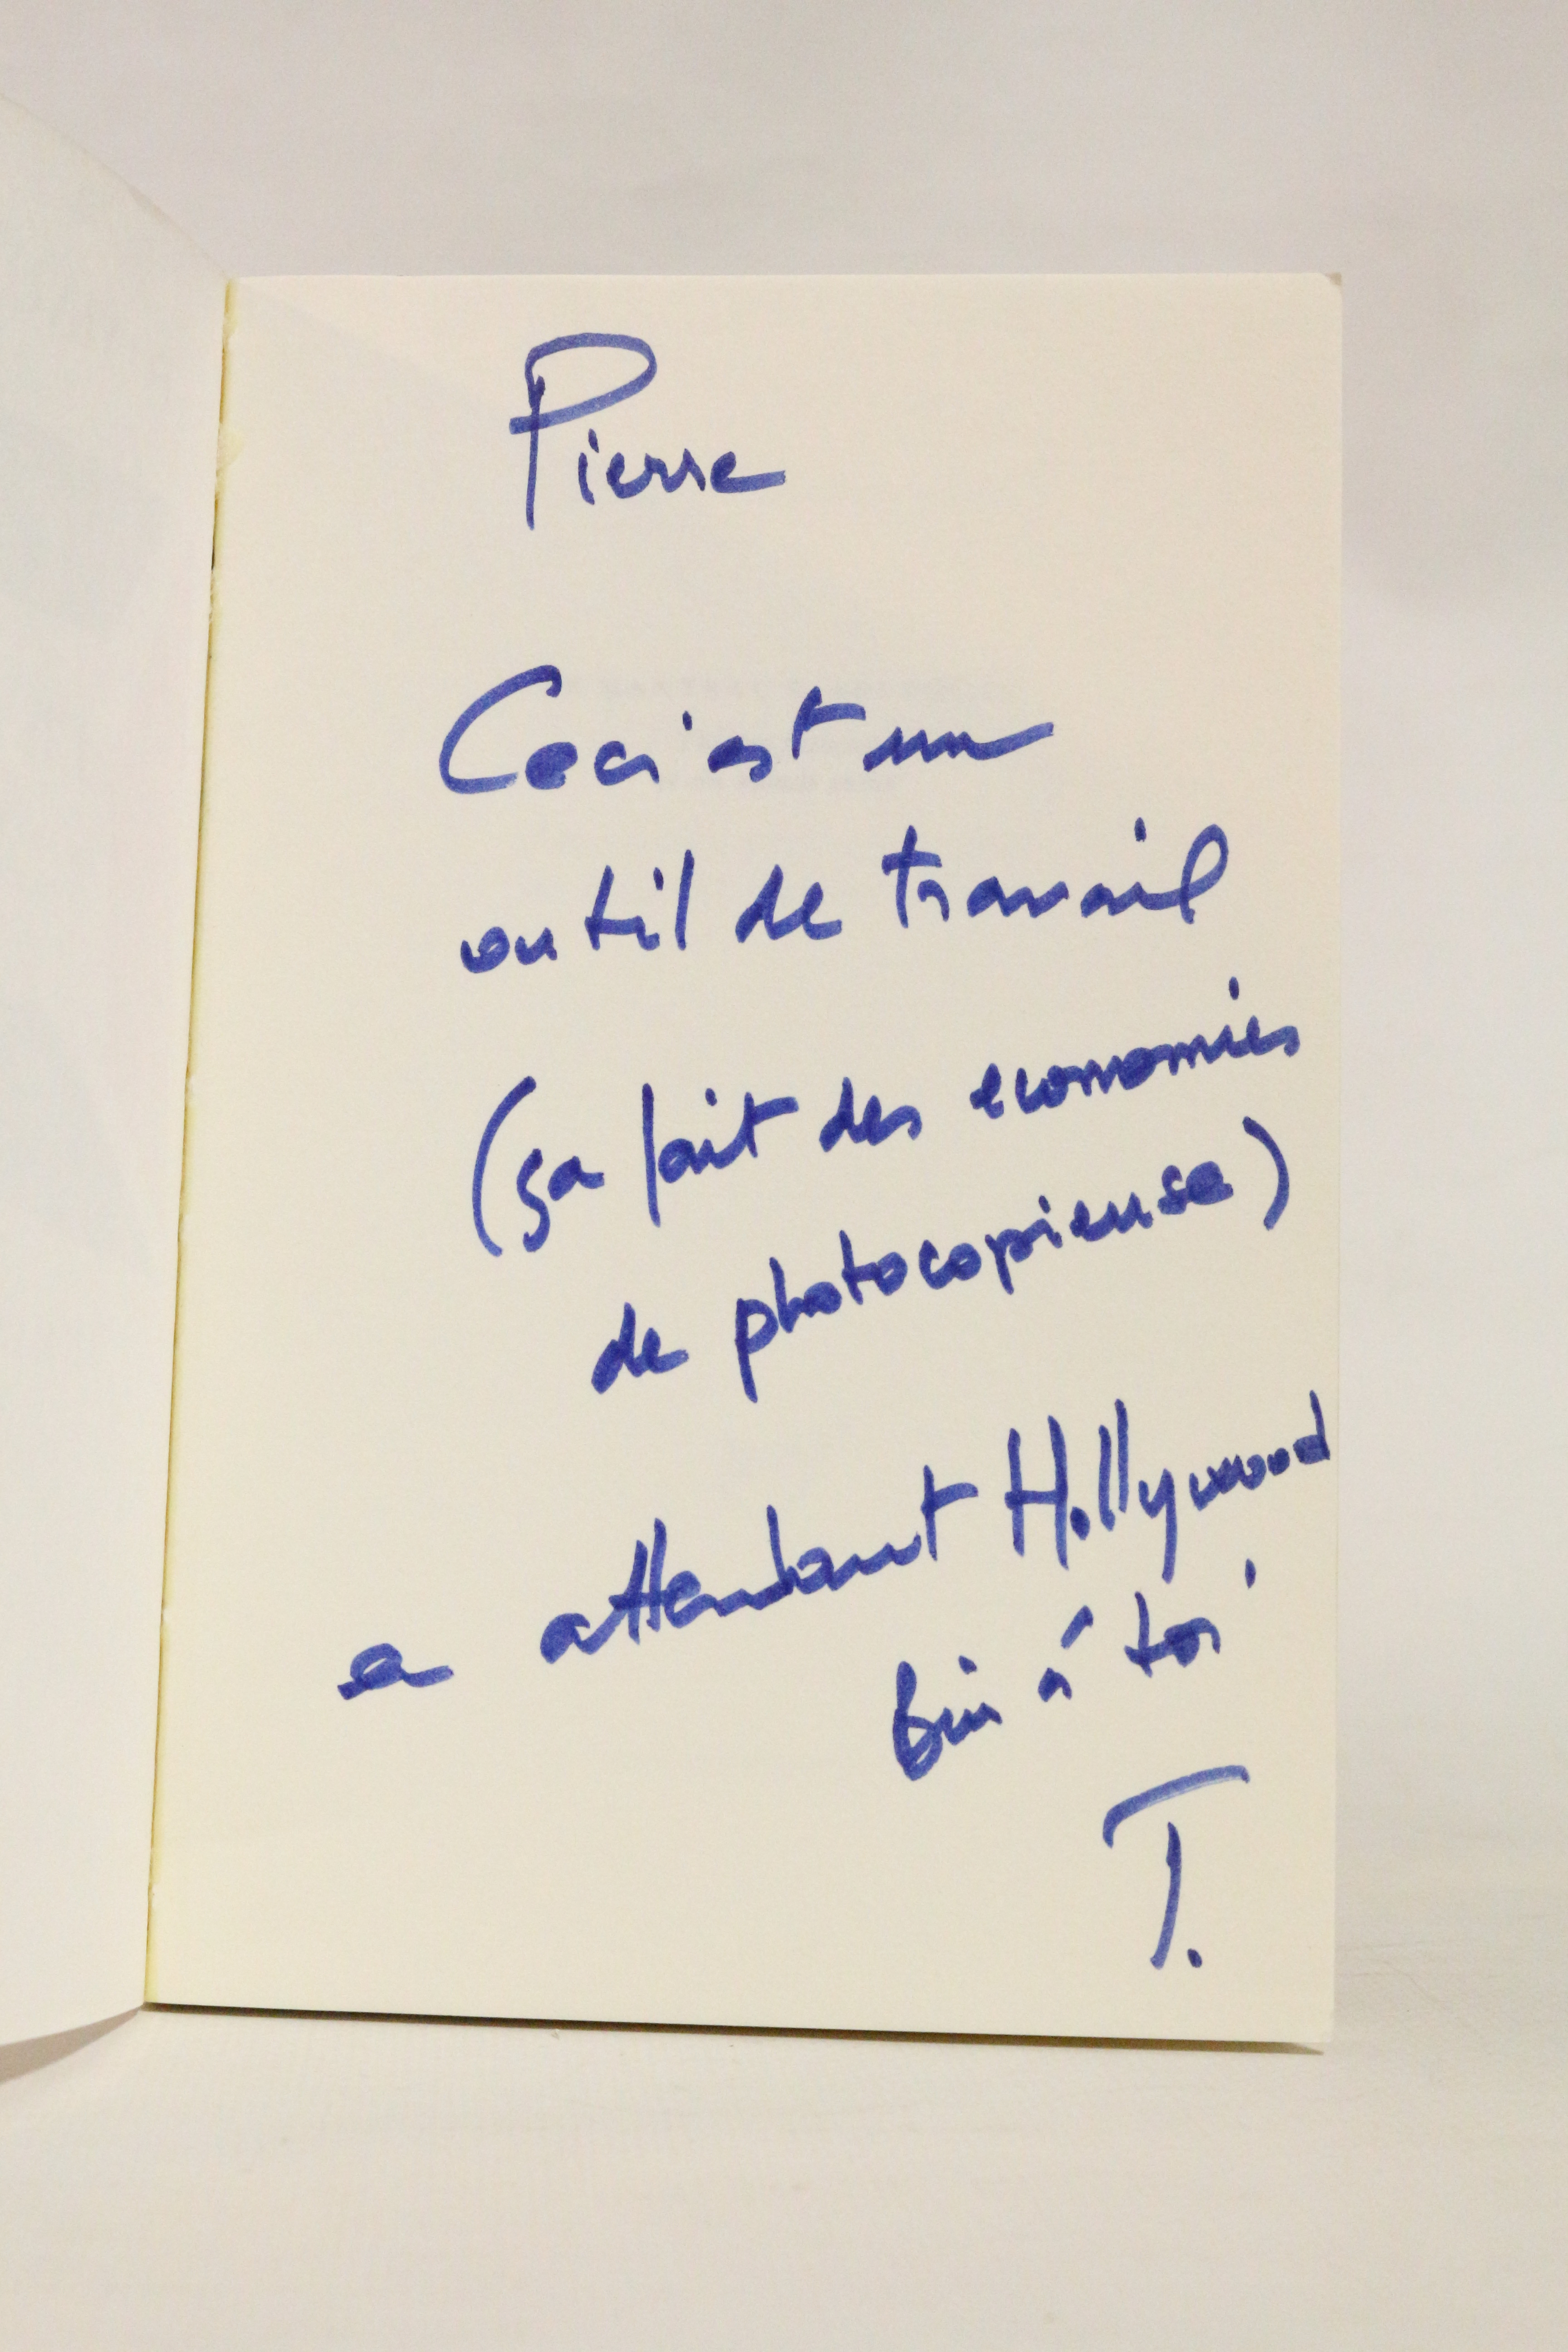 Pierre
Ceci est un
outil de travail
(ça fait des economies
de photocopieuse)
en attendant Hollywood
bien à toi
T.